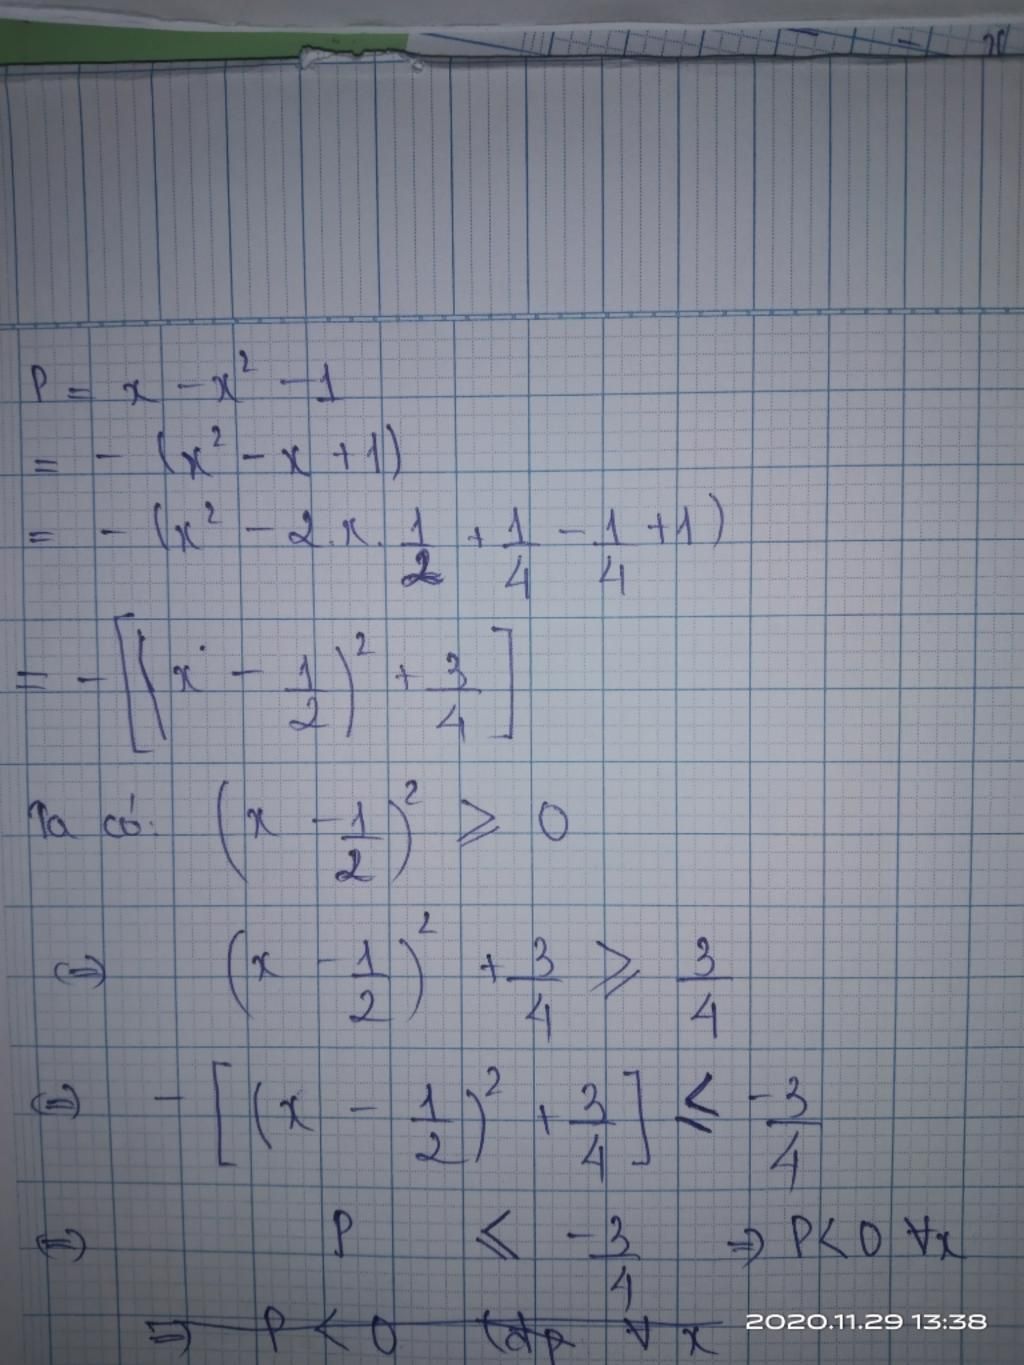 P = x - x² - 1
= - (x² - x + 1)
= - (x² - 2.x. 1/2 + 1/4 - 1/4 + 1)
= - [(x - 1/2)² + 3/4]
Ta có: (x - 1/2)² ⩾ 0
⇔ (x - 1/2)² + 3/4 ⩾ 3/4
⇔ - [(x - 1/2)² + 3/4] ⩽ -3/4
⇔ P ⩽ -3/4 ⇒ P < 0 ∀x
⇒ P < 0 ∀ x
2020.11.29 13:38